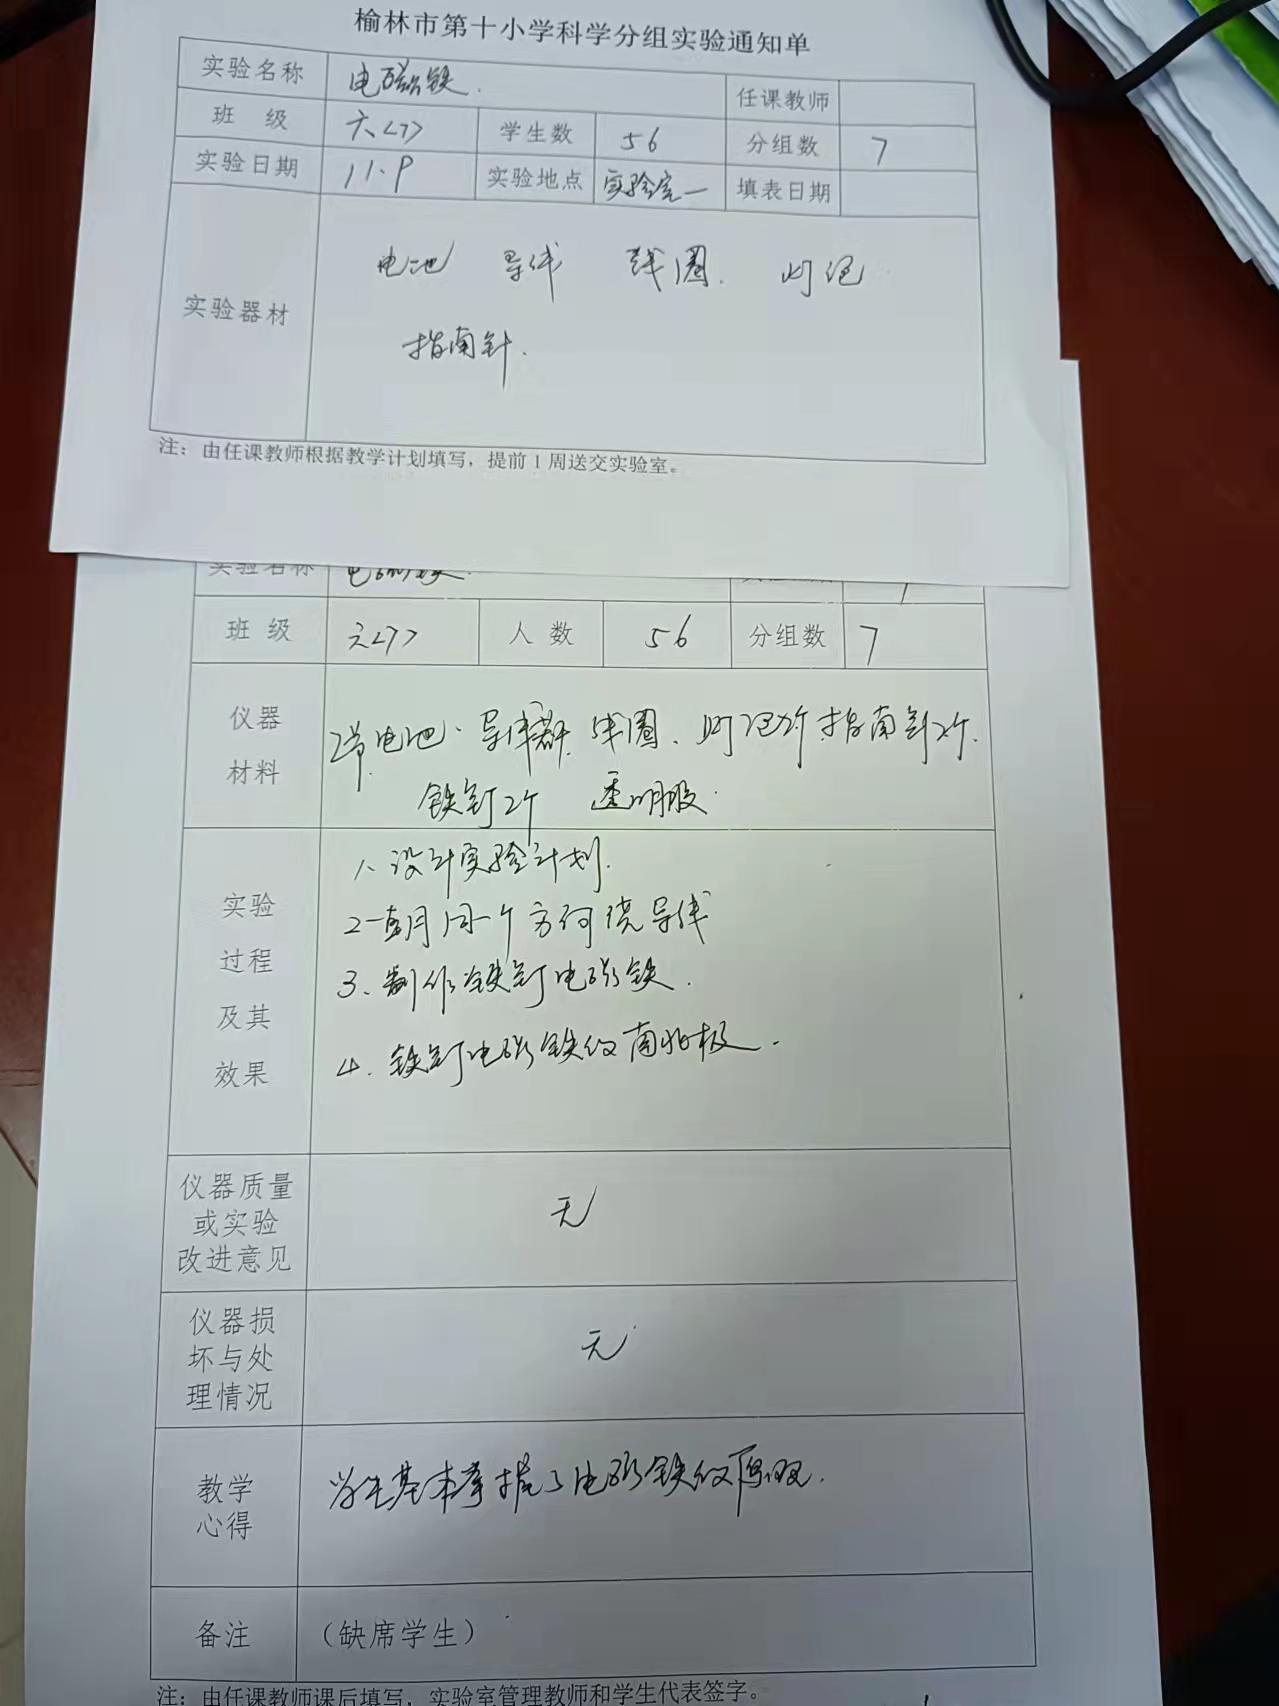 榆林市第十小学科学分组实验通知单
实验名称 电磁铁. 任课教师
班 级 六<7> 学生数 56 分组数 7
实验日期 11.9 实验地点 实验室一 填表日期
实验器材
电池 导线 线圈. 灯泡
指南针.
注：由任课教师根据教学计划填写，提前1周送交实验室。
实验名称 电磁铁.
班 级 六<7> 人 数 56 分组数 7
仪器
材料
2节电池、导线 线圈、灯泡2个 指南针2个.
铁钉2个 透明胶.
实验
过程
及其
效果
1、设计实验计划.
2 一直用同一个方向绕导线
3、制作铁钉电磁铁.
4. 铁钉电磁铁的南北极.
仪器质量
或实验
改进意见
无
仪器损
坏与处
理情况
无
教学
心得
学生基本掌握了电磁铁的原理.
备注 （缺席学生）
注：由任课教师课后填写，实验室管理教师和学生代表签字。